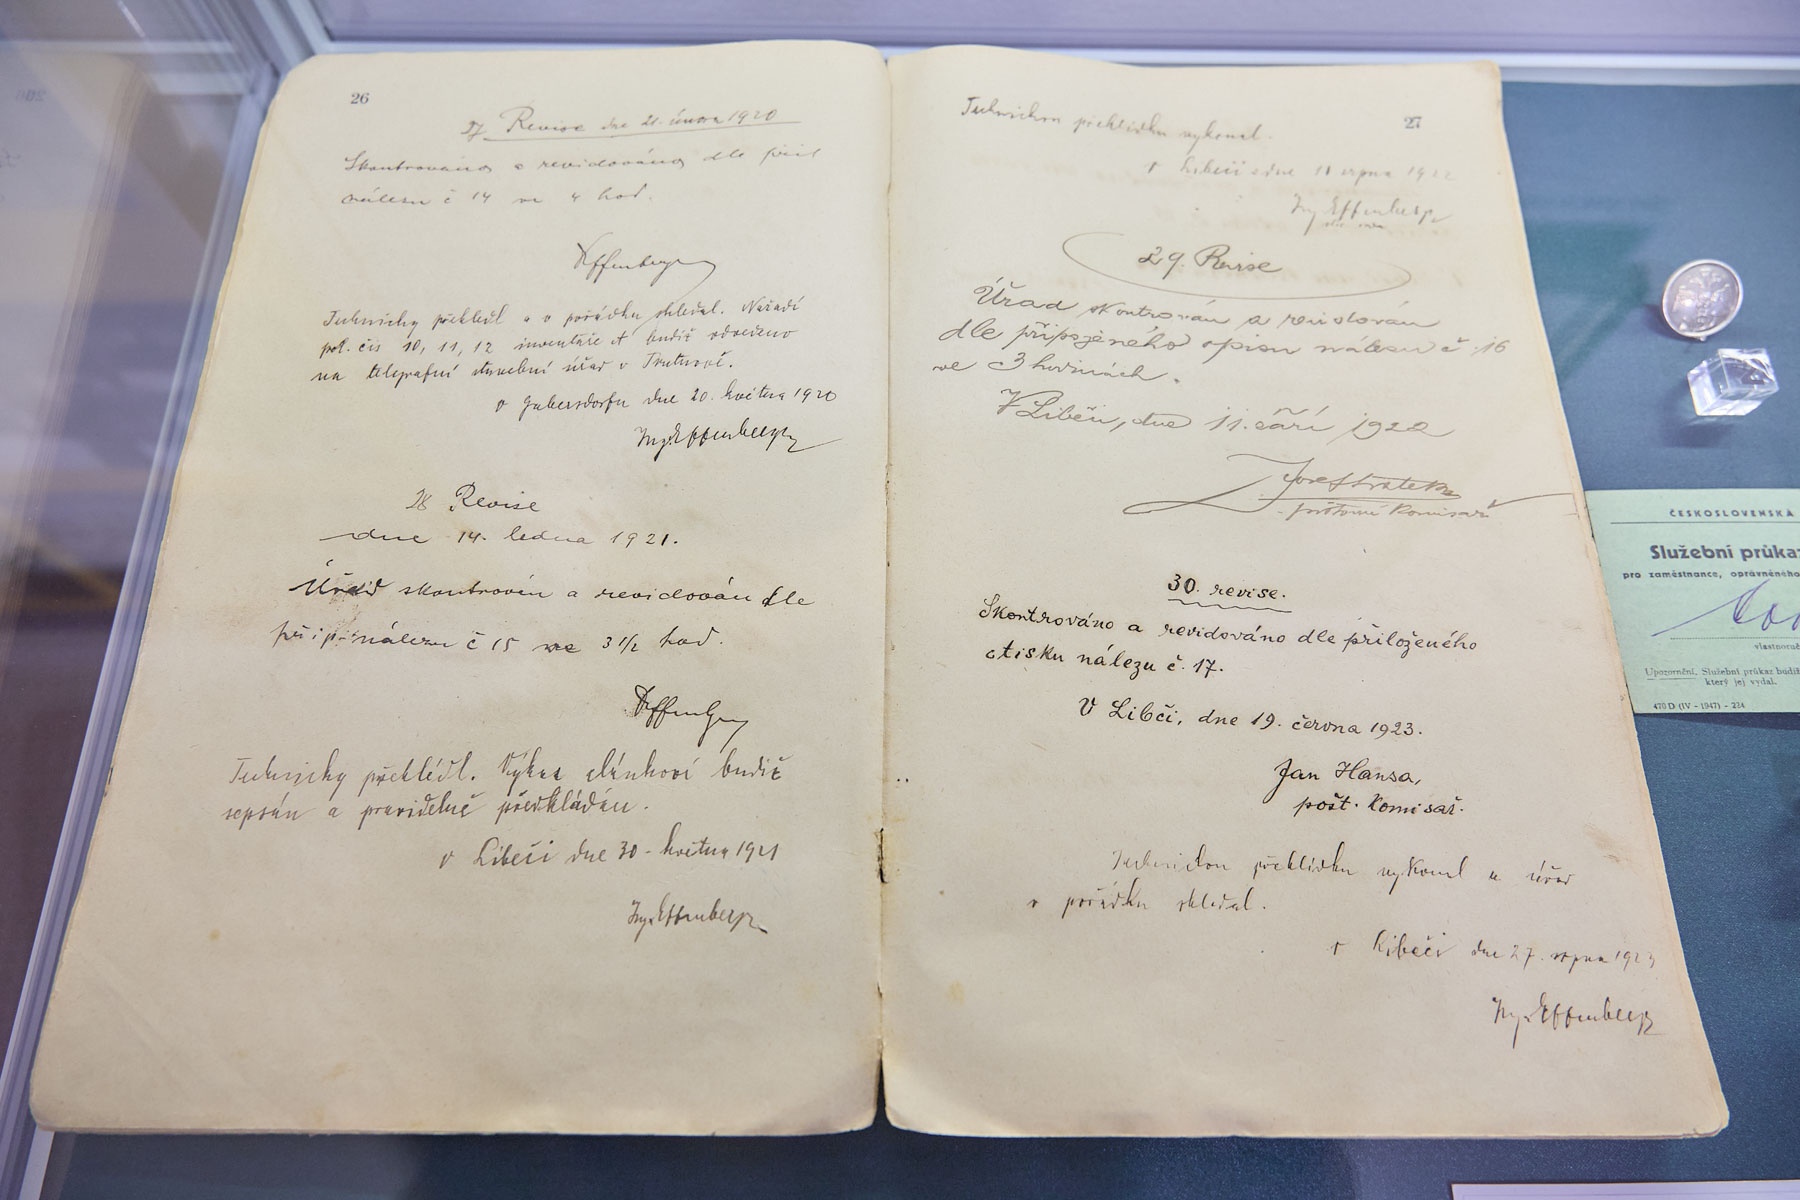 26
27 Revise dne 21. února 1920
Skontrováno a revidováno dle přil
nálezu č 14 ve 4 hod.
Effenberger
Technicky přehlédl a v pořádku shledal. Nářadí
pol. čís 10, 11, 12 inventáře A budiž odvedeno
na telegrafní stavební úřad v Trutnově.
v Gabersdorfu dne 20. května 1920
Ing. Effenberger
28 Revise
dne 14. ledna 1921.
Úřad skontrován a revidován dle
příp. nálezu č 15 ve 3 1/2 hod.
Effenberger
Technicky přehlédl. Výkaz článkový budiž
sepsán a pravidelně předkládán.
v Libči dne 30. května 1921
Ing. Effenberger
27
Technickou přehlídku vykonal.
v Libči dne 11 srpna 1922
Ing. Effenberger
29. Revise
Úřad skontrován a revidován
dle připojeného opisu nálezu č. 16
ve 3 hodinách.
V Libči, dne 11. září 1922
Josef
poštovní komisař
30. revise.
Skontrováno a revidováno dle přiloženého
otisku nálezu č. 17.
V Libči, dne 19. června 1923.
Jan Hansa,
pošt. komisař.
Technickou přehlídku vykonal a úřad
v pořádku shledal.
v Libči dne 27. srpna 1923
Ing. Effenberger
ČESKOSLOVENSKÁ
Služební průkaz
pro zaměstnance, oprávněného
vlastnoruč
Upozornění. Služební průkaz budiž
který jej vydal.
470 D (IV - 1947) - 224